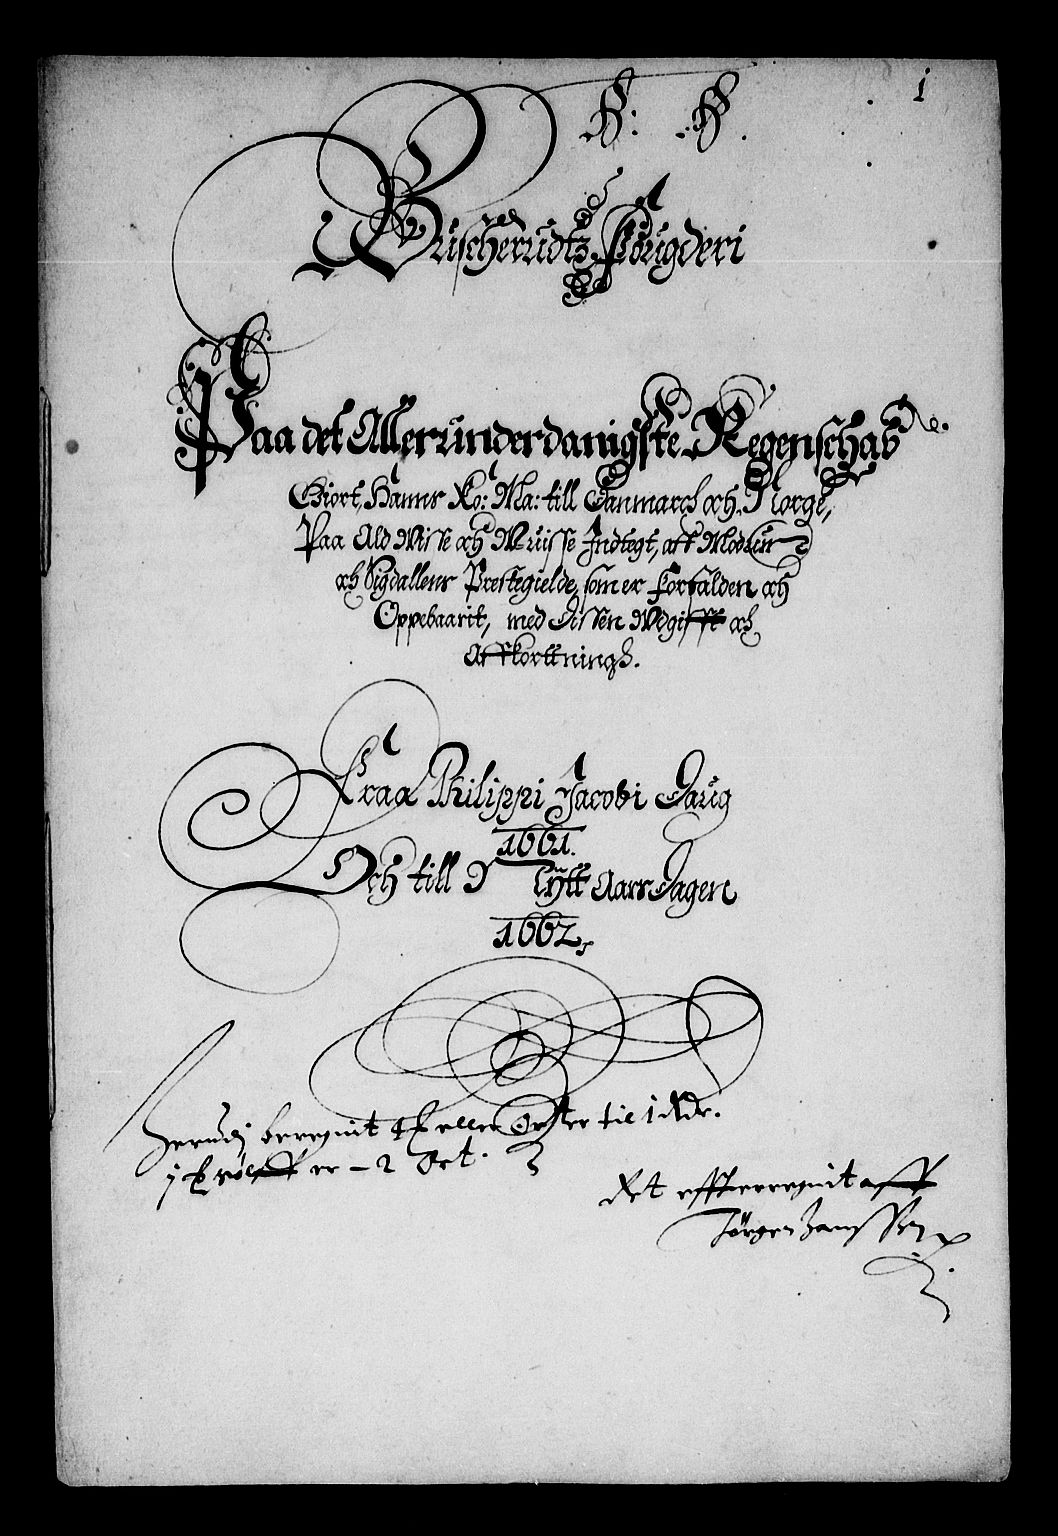 1
Buscherudtz Fougderi
Paa det Allerunderdanigste Regenschab
Giort, Hanns Ko: Ma: till Danmarch och Norge,
Paa Ald Wisse och Wuisse Indtegt, aff Modum
och Sigdallens Prestegielde, som er Forfalden och
Oppebaarit, med dissen Wdgifft och
Affkorttningh.
Fraa Philippi Jacobi Daug
1661.
Och till D Nytt Aars Dagen
1662,
beregnit eller til 1 Rdr.
er - 2 Ort.
Ret effterregnit aff
Jørgen Hanssen